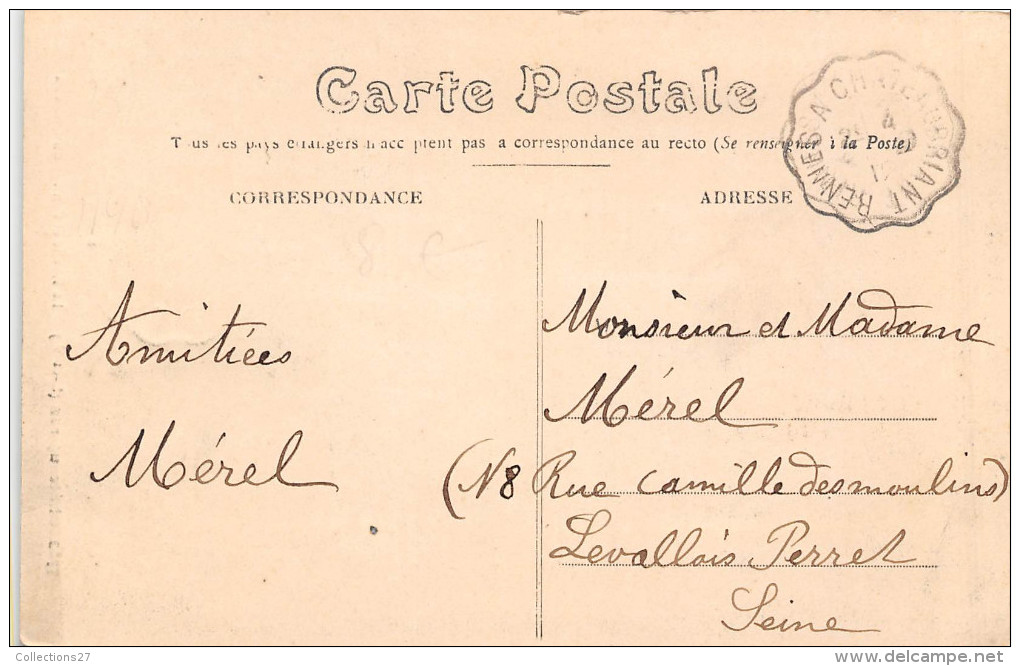 Carte Postale
Tous les pays étrangers n'acceptent pas la correspondance au recto (Se renseigner à la Poste)
RENNES A CHATEAUBRIANT
CORRESPONDANCE
ADRESSE
8 €
Amitiées
Mérel
Monsieur et Madame
Mérel
(N 8 Rue Camille desmoulins)
Levallois Perret
Seine
Collections27
delcampe.net